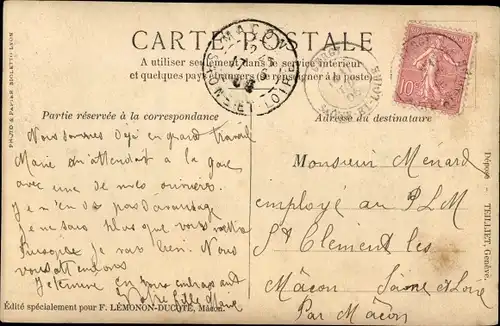 CARTE POSTALE
A utiliser seulement dans le service intérieur
et quelques pays étrangers (se renseigner à la poste)
Partie réservée à la correspondance
Adresse du destinataire
Nous sommes déjà en grand travail
Marie m'attendait à la gare
avec une de mes
Je n'en dis pas davantage
Je ne sais plus que vous mettre
Puisque je vais bien. Nous
vous attendons
Je termine en vous embrassant
Votre fille Marie
Monsieur Ménard
employé au PLM
St Clément les
Mâcon Saône et Loire
Par Mâcon
Édité spécialement pour F. LÉMONON-DUCOTÉ, Mâcon.
PHOTO & PAPIER BIOLETTO LYON
Déposé - TEILLIET, Genève.
MACON
SAONE-ET-LOIRE
10